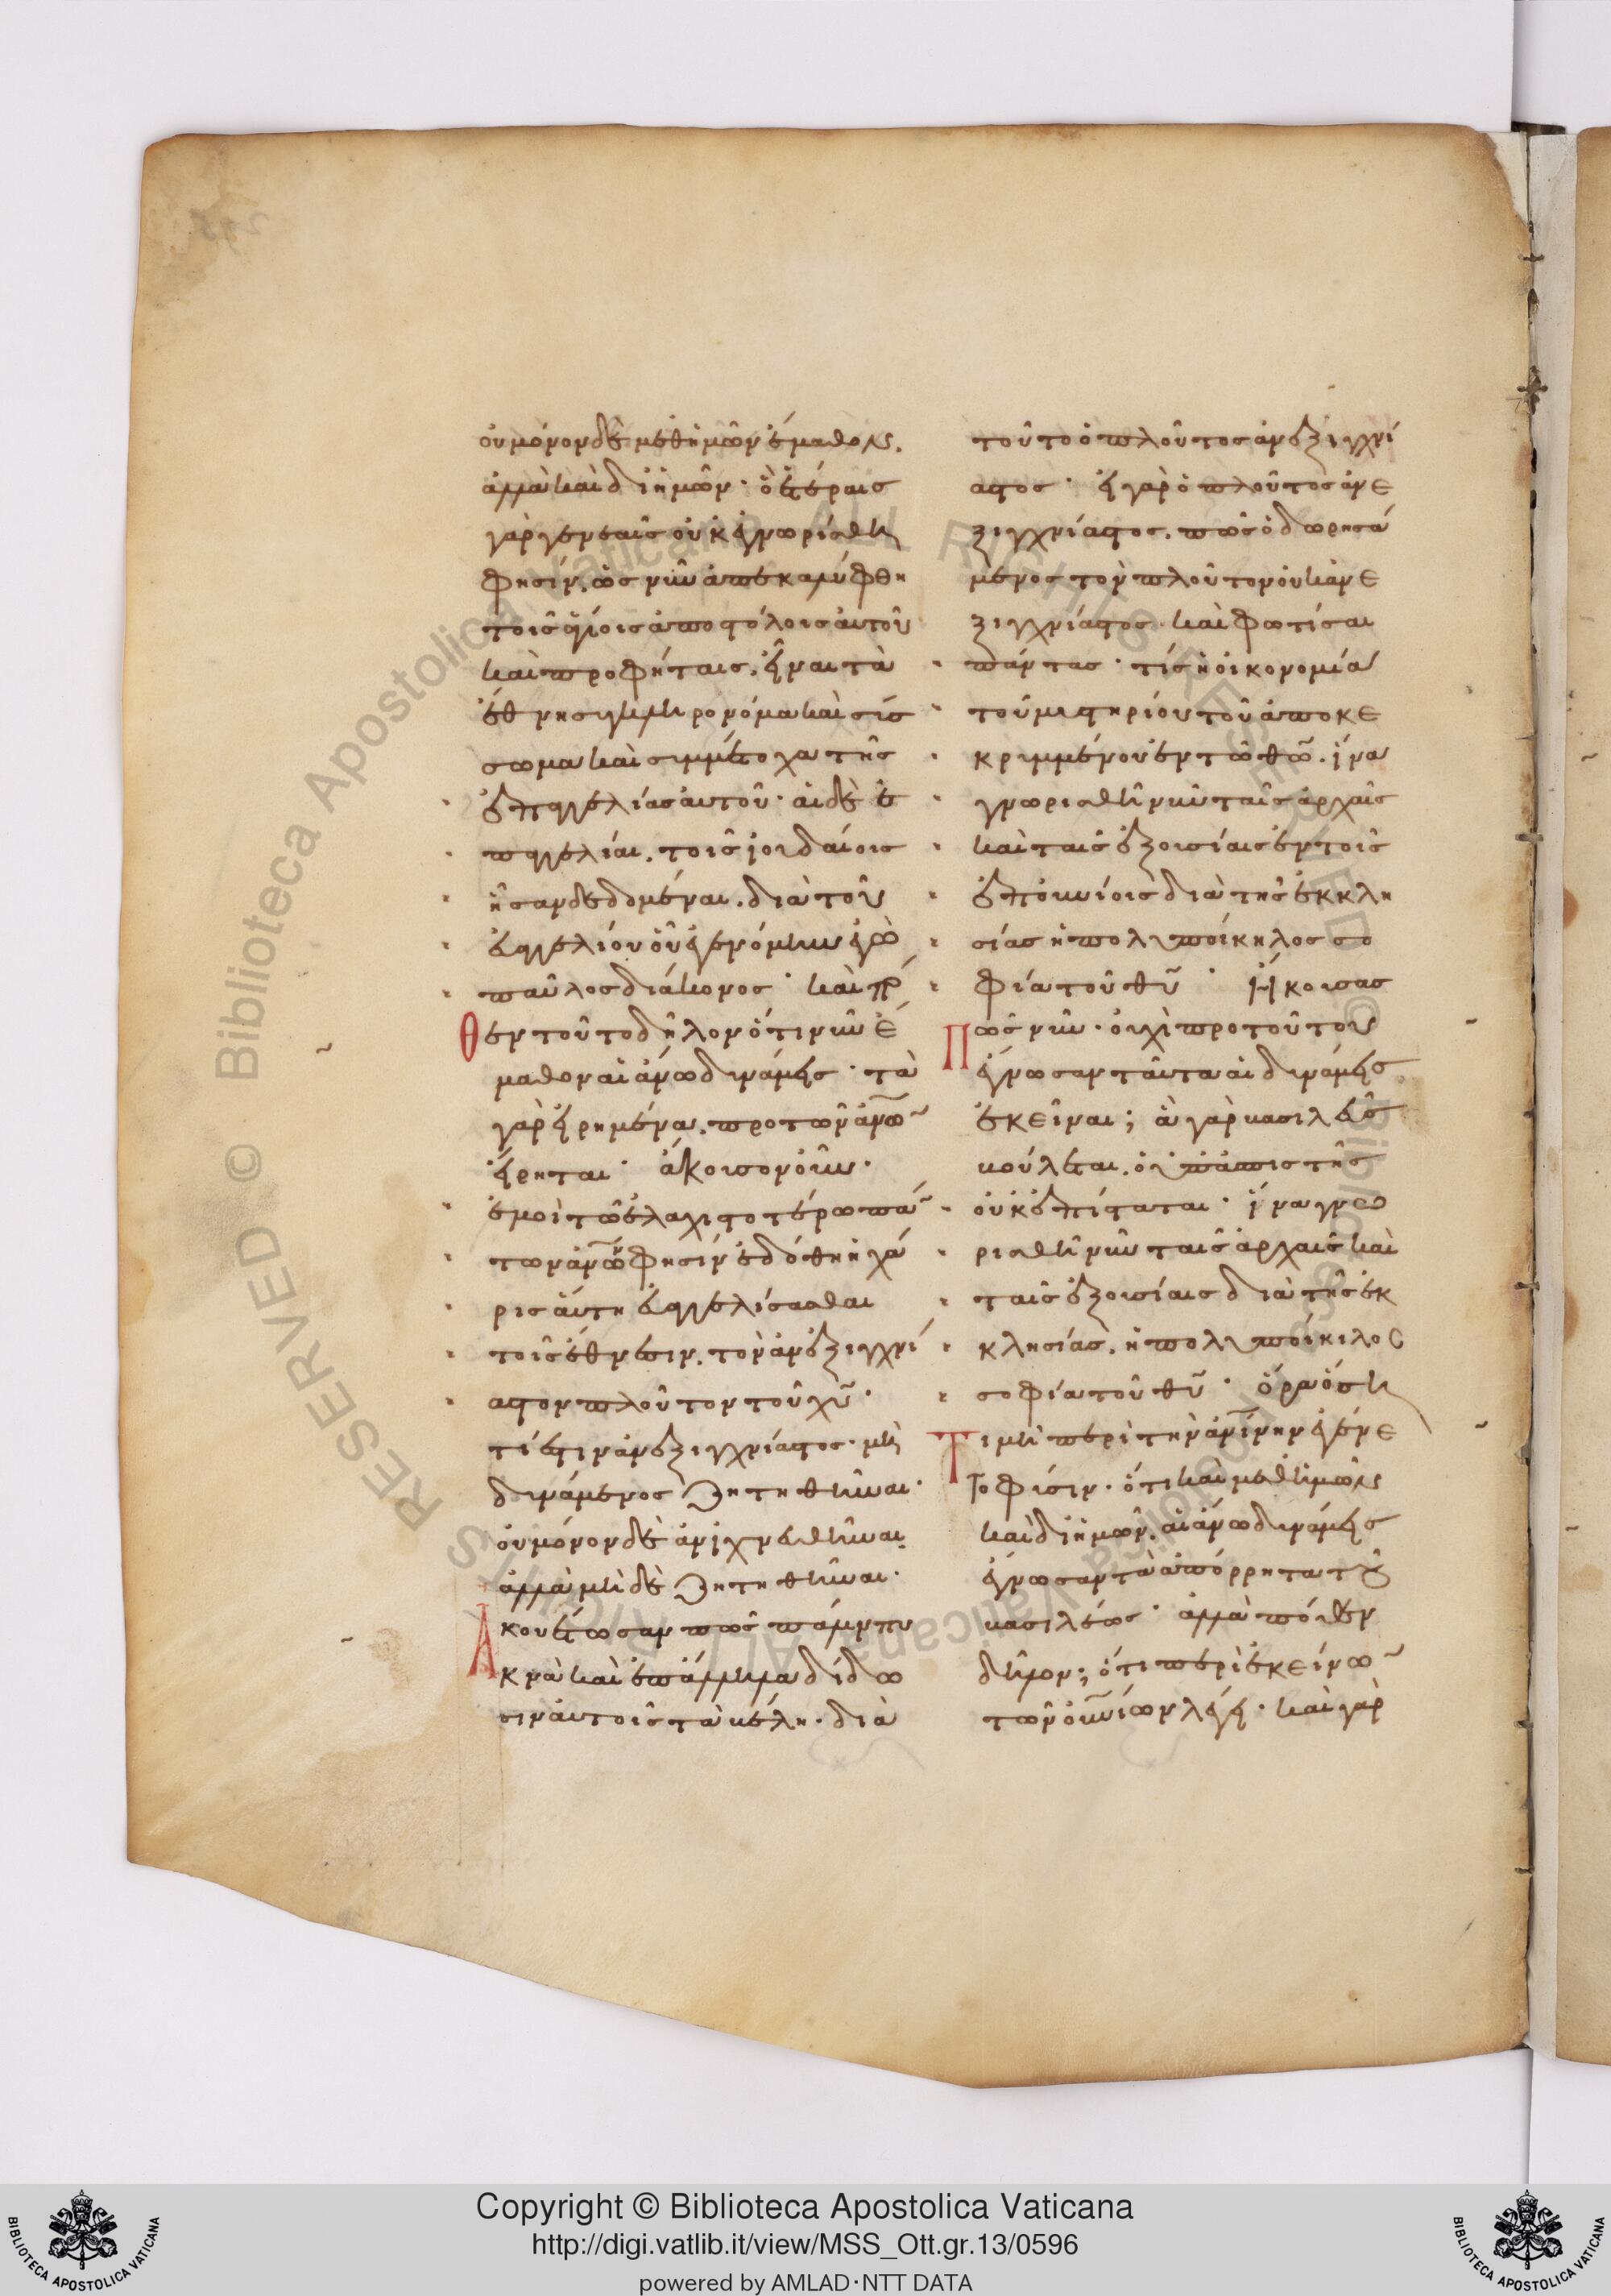 οὐ μόνον δὲ μεθ ἡμῶν ἔμαθον,
ἀλλὰ καὶ δι ἡμῶν· ὃ ἑτέραις
γὰρ γενεαῖς οὐκ ἐγνωρίσθη
φησίν, ὡς νῦν ἀπεκαλύφθη
τοῖς ἁγίοις ἀποστόλοις αὐτοῦ
καὶ προφήταις, εἶναι τὰ
ἔθνη συγκληρονόμα καὶ σύσ
σωμα καὶ συμμέτοχα τῆς
ἐπαγγελίας αὐτοῦ· αἱ δὲ ἐ
παγγελίαι, τοῖς ἰουδαίοις
ἦσαν δεδομέναι, διὰ τοῦ
εὐαγγελίου οὗ ἐγενόμην ἐγὼ
παῦλος διάκονος· καὶ
θεν τοῦτο δῆλον ὅτι νῦν ἔ
μαθον αἱ ἄνω δυνάμεις· τὰ
γὰρ εἰρημένα, προ τῶν ἀνω~
εἴρηται· ἄκουσον οὖν·
ἐμοὶ τῶ ἐλαχιστοτέρω πα~
των ἀν̅ω̅ν φησὶν ἐδόθη ἡ χά
ρις αὕτη εὐαγγελίσασθαι
τοῖς ἔθνεσιν, τὸν ἀνεξιχνί
αστον πλοῦτον τοῦ χυ̅·
τί ἐστιν ἀνεξιχνίαστος· μὴ
δυνάμενος ζητηθῆναι·
οὐ μόνον δὲ ἀνιχνευθῆναι
ἀλλὰ μὴ δὲ ζητηθῆναι·
Ἀκουέτωσαν πῶς πάλιν πυ
κνὰ καὶ ἐπάλληλα δίδω
σιν αὐτοῖς τὰ βέλη· διὰ
τοῦτο ὁ πλοῦτος ἀνεξιχνί
αστος· εἰ γὰρ ὁ πλοῦτος ἀνε
ξιχνίαστος, πῶς ὁ δωρησά
μενος τὸν πλοῦτον οὐκ ἀνε
ξιχνίαστος· καὶ φωτίσαι
πάντας· τίς ἡ οἰκονομία
τοῦ μυστηρίου τοῦ ἀποκε
κρυμμένου ἐν τῶ θω̅· ἵνα
γνωρισθῆ νῦν ταῖς ἀρχαῖς
καὶ ταῖς ἐξουσίαις ἐν τοῖς
ἐπουνίοις διὰ τῆς ἐκκλη
σίας ἡ πολυποίκηλος σο
φία τοῦ θυ̅· Ἤκουσας
Πῶς νῦν· οὐχὶ προ τούτου
ἔγνωσαν ταῦτα αἱ δυνάμεις
ἐκεῖναι; ἃ γὰρ βασιλεὺς
βούλεται, ὁ ὑπασπιστὴς
οὐκ ἐπίσταται· ἵνα γνω
ρισθῆ νῦν ταῖς ἀρχαῖς καὶ
ταῖς ἐξουσίαις διὰ τῆς ἐκ
κλησίας, ἡ πολυποίκιλος
σοφία τοῦ θυ̅· ὅρα ὅση
Τιμὴ περὶ τὴν ἀνίνην ἐγένε
το φύσιν· ὅτι καὶ μεθ ἡμῶν
καὶ δι ἡμῶν, αἱ ἄνω δυνάμεις
ἔγνωσαν τὰ ἀπόρρητα τοῦ
βασιλέως· ἀλλὰ πόθεν
δῆλον; ὅτι περὶ ἐκείνω~
τῶν οὐν̅ίων λέγει· καὶ γὰρ
Copyright © Biblioteca Apostolica Vaticana
http://digi.vatlib.it/view/MSS_Ott.gr.13/0596
powered by AMLAD·NTT DATA